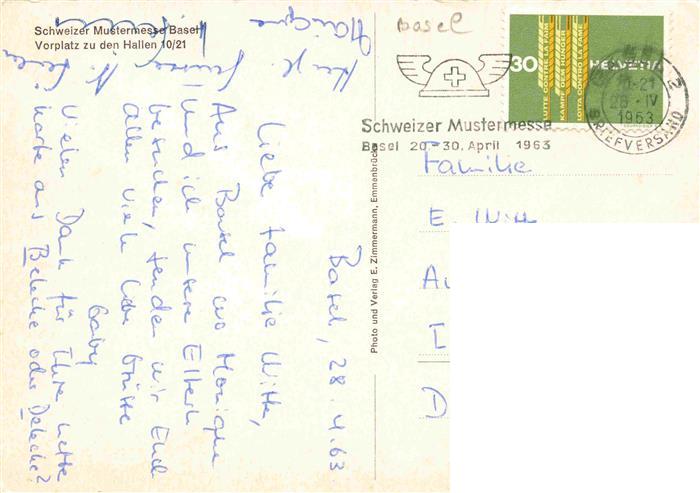 Schweizer Mustermesse Basel
Vorplatz zu den Hallen 10/21
Basel
30
HELVETIA
LUTTE CONTRE LA FAIM
KAMPF DEM HUNGER
LOTTA CONTRO LA FAME
28 · IV
1963
BRIEFVERSAND
Schweizer Mustermesse
Basel 20.-30. April 1963
Photo und Verlag E. Zimmermann, Emmenbrücke
Basel, 28.4.63
Liebe Familie Witte,
Aus Basel wo Monique
und ich unsere Eltern
besuchen, senden wir Euch
allen viele liebe Grüsse
Gaby
Vielen Dank für Ihre nette
Karte aus Belecke oder Delecke?
Monique
Familie
E. Witt